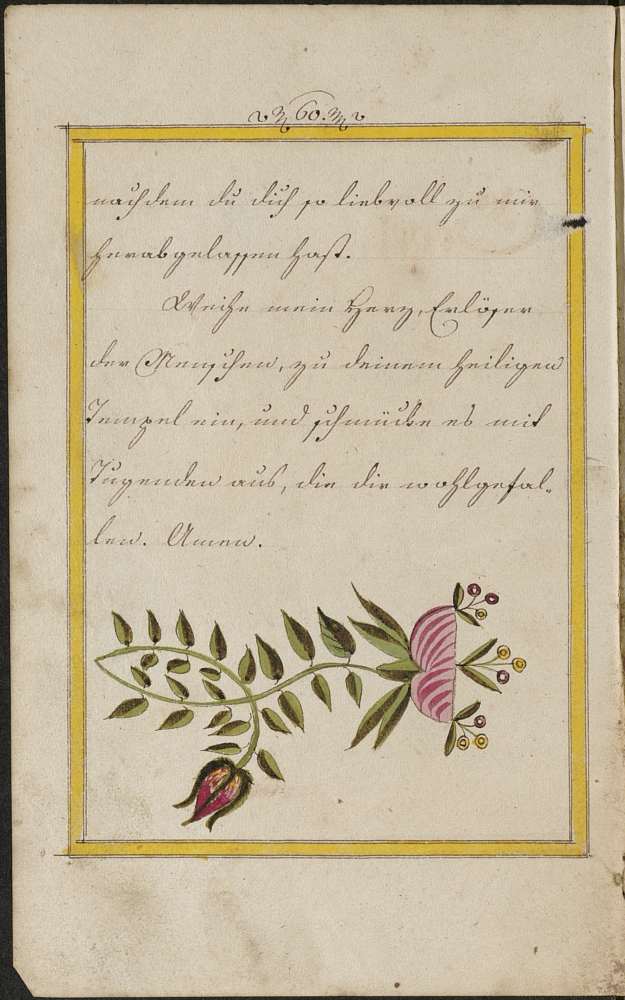 60.
nachdem du dich so liebvoll zu mir
herabgelassen hast.
Weihe mein Herz, Erlöser
der Menschen, zu deinem heiligen
Tempel ein, und schmücke es mit
Tugenden aus, die dir wohlgefal-
len. Amen.